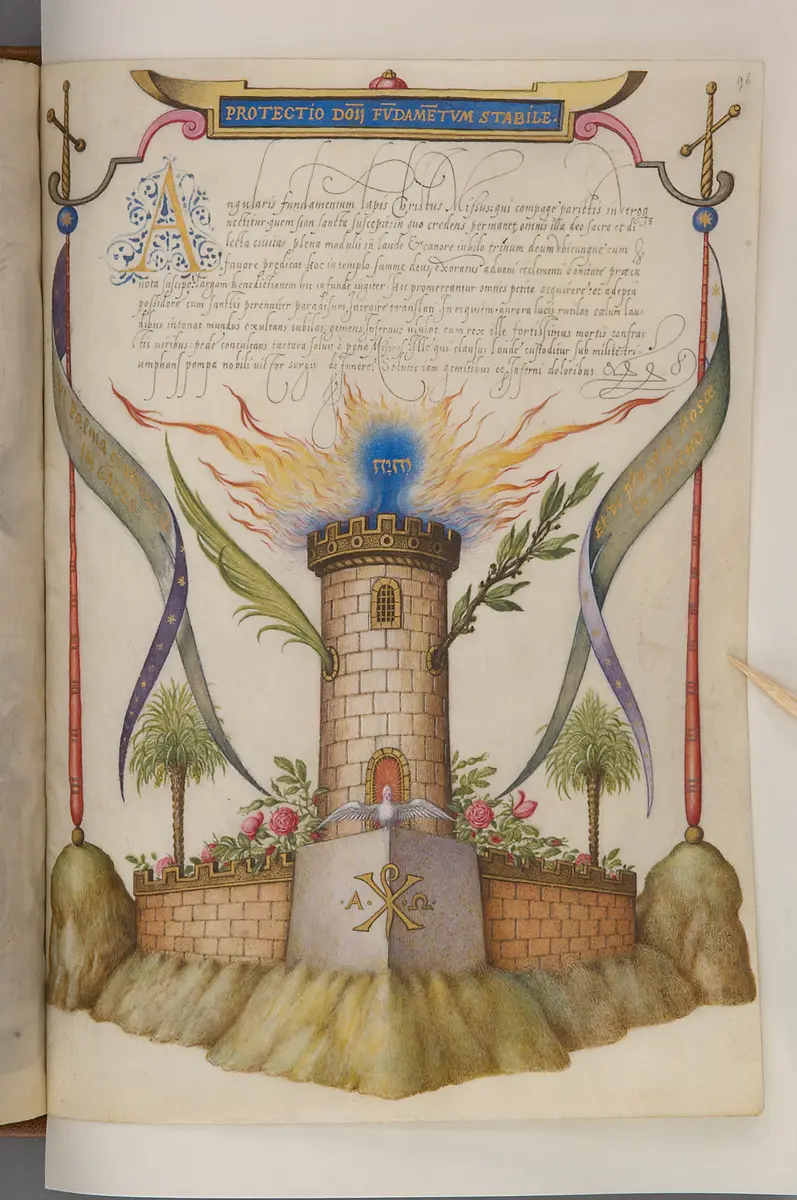 96
PROTECTIO DOĪJ FVDAMĒTVM STABILE.
Angularis fundamentum lapis Christus Missus: qui compage parietis in
nectitur: quem sion sancta suscepit: in quo credens permanet, omnis illa deo sacra et di
lecta civitas plena modulis in laude & canore iubilo trinum deum
favore predicat. Hoc in templo summe deus, exoratus adveni et clementi bonitate
vota suscipe: largam benedictionem hic infunde iugiter. Hic promereantur omnes petita acquirere: et adepta
possidere cum sanctis perenniter paradisum introire translati In requiem. Aurora lucis rutilat caelum lau-
dibus intonat mundus exultans iubilat, gemens Infernus ululat cum rex ille fortissimus mortis confrac
tis viribus: pede conculcans tartara solvit Ille qui clausus laude custoditur sub milite: tri-
umphans pompa nobili victor surgit de funere. Solutis iam gemitibus et Inferni doloribus
יהוה
palma
et
plantatio Rosæ
in
·A· Ω·